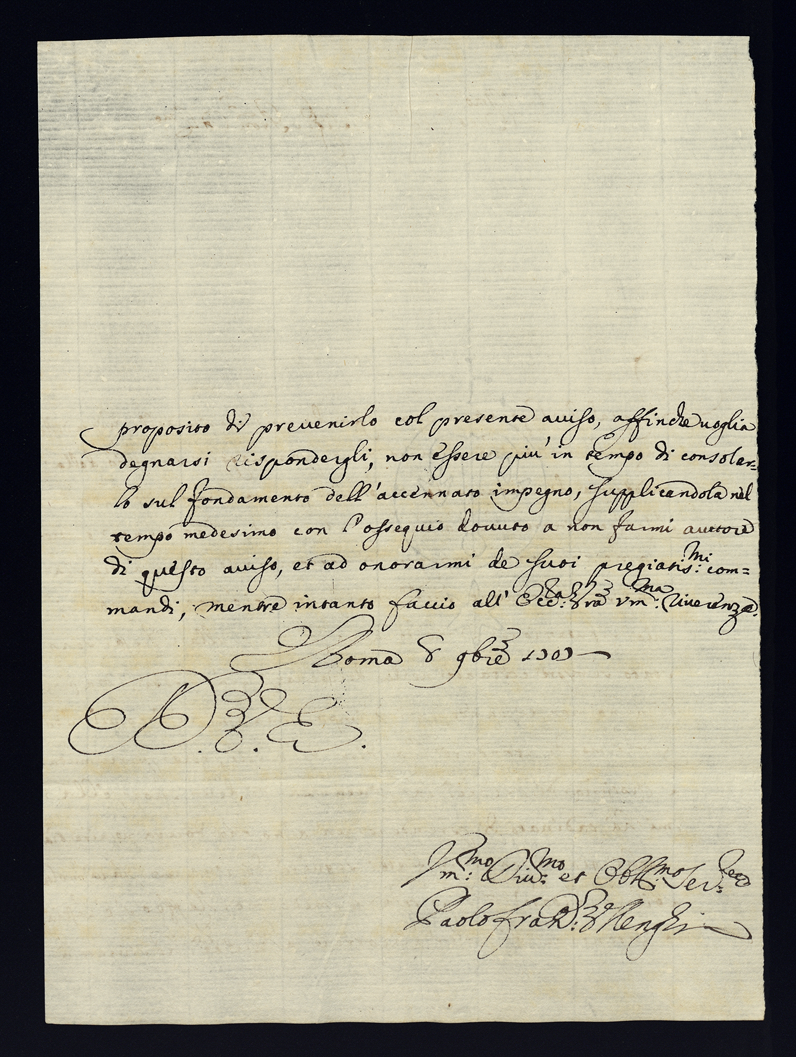 proposito di prevenirlo col presente aviso, affinche voglia
degnarsi rispondergli, non essere piu' in tempo di consolar=
lo sul fondamento dell'accennato impegno, supplicandola nel
tempo medesimo con l'ossequio dovuto a non farmi auttore
di questo aviso, et ad onorarmi de suoi pregiatis:mi com=
mandi, mentre intanto faccio all' Ecc:za Vra um:ma riverenza.
Roma 8 9bre
D. V. E.
Um:mo Div:mo et Obl:mo Ser:re
Paolo Fran: